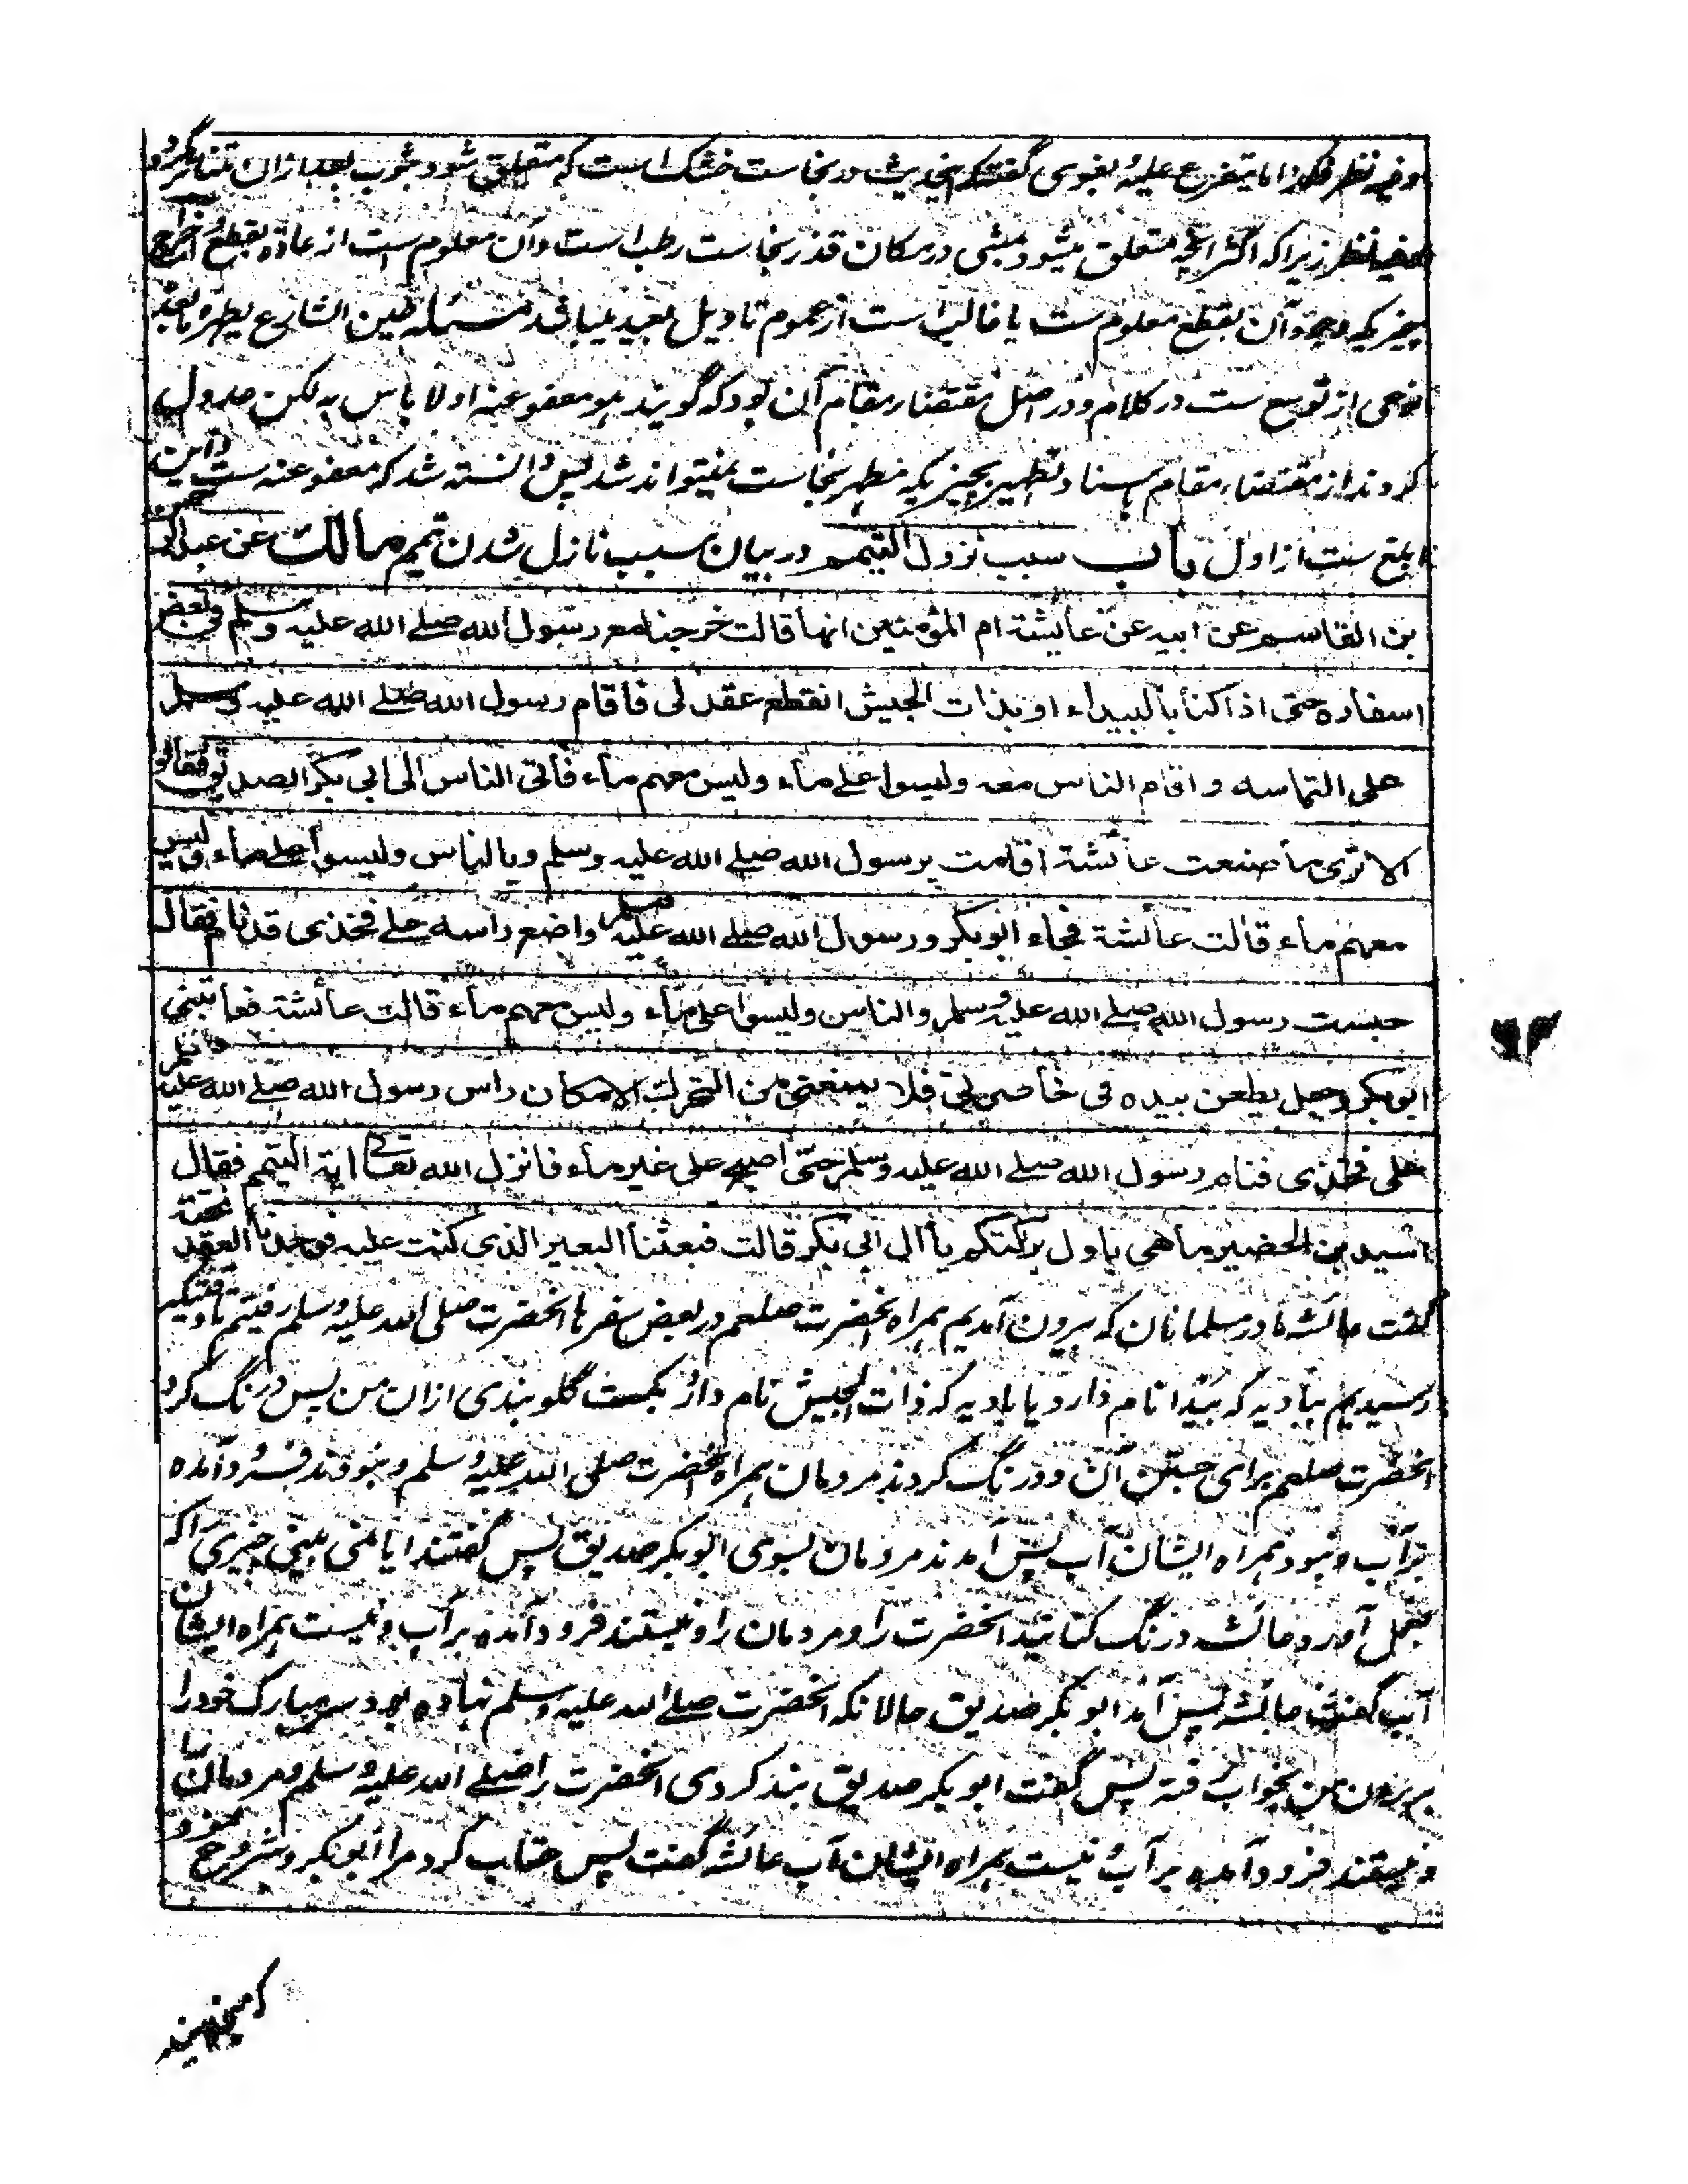 وفیه نظر فکذا ما یتفرع علیه بغوی گفته که این حدیث در نجاست خشک است که متعلق شود بثوب بعد ازان تناثر گردد
وفیه نظر زیرا که اکثر آنچه متعلق میشود بمشی در مکان قذر نجاست رطب است وآن معلوم است از عادة بقطع اخراج
چیزیکه وجود آن بقطع معلوم ست یا غالب است از عموم تاویل بعید میباشد مسئله طین الشارع یطهره ما بعده
نوعی از توسع ست در کلام ودر اصل مقتضاء مقام آن بود که گویند هو معفو عنه او لا باس به لکن عدول
کردند از مقتضاء مقام باسناد تطهیر بچیزیکه مطهر نجاست نمیتواند شد پس دانسته شد که معفو عنه ست واین
ابلغ ست از اول باب سبب نزول التیمم در بیان سبب نازل شدن تیمم مالک عن عبد الرحمن
بن القاسم عن ابیه عن عائشة ام المؤمنین انها قالت خرجنا مع رسول الله صلے الله علیه وسلم فی بعض
اسفاره حتی اذا کنا بالبیداء او بذات الجیش انقطع عقد لی فاقام رسول الله صلے الله علیه وسلم
علی التماسه واقام الناس معه ولیسوا علے ماء ولیس معهم ماء فاتی الناس الی ابی بکر الصدیق فقالوا
الا تری ما صنعت عائشة اقامت برسول الله صلے الله علیه وسلم وبالناس ولیسوا علے ماء ولیس
معهم ماء قالت عائشة فجاء ابو بکر ورسول الله صلے الله علیه وسلم واضع راسه علے فخذی قد نام فقال
حبست رسول الله صلے الله علیه وسلم والناس ولیسوا علی ماء ولیس معهم ماء قالت عائشة فعاتبنی
ابو بکر وجعل یطعن بیده فی خاصرتی فلا یمنعنی من التحرک الا مکان راس رسول الله صلے الله علیه وسلم
علی فخذی فنام رسول الله صلے الله علیه وسلم حتی اصبح علی غیر ماء فانزل الله تعالے ایة التیمم فقال
اسید بن الحضیر ما هی باول برکتکم یا ال ابی بکر قالت فبعثنا البعیر الذی کنت علیه فوجدنا العقد تحته
گفت عائشه مادر مسلمانان که بیرون آمدیم همراه آنحضرت صلعم در بعض سفرها آنحضرت صلی الله علیه وسلم رفتیم تا وقتیکه
رسیدیم ببادیه که بیدا نام دارد یا بادیه که ذات الجیش نام دارد بگسست گلوبندی ازان من پس درنگ کرد
آنحضرت صلعم برای جستن آن ودرنگ کردند مردمان همراه آنحضرت صلی الله علیه وسلم ونبودند فرود آمده
بر آب ونبود همراه ایشان آب پس آمدند مردمان بسوی ابوبکر صدیق پس گفتند ایا نمی بینی چیزی را که
بعمل آورد عائشه درنگ کنانید آنحضرت را ومردمان را ونیستند فرود آمده بر آب ونیست همراه ایشان
آب گفت عائشه پس آمد ابو بکر صدیق حالانکه آنحضرت صلے الله علیه وسلم نهاده بود سر مبارک خود را
بر ران من بخواب رفته پس گفت ابو بکر صدیق بند کردی آنحضرت را صلے الله علیه وسلم ومردمان را
ونیستند فرود آمده بر آب ونیست همراه ایشان آب عائشه گفت پس عتاب کرد مرا ابو بکر وشروع نمود